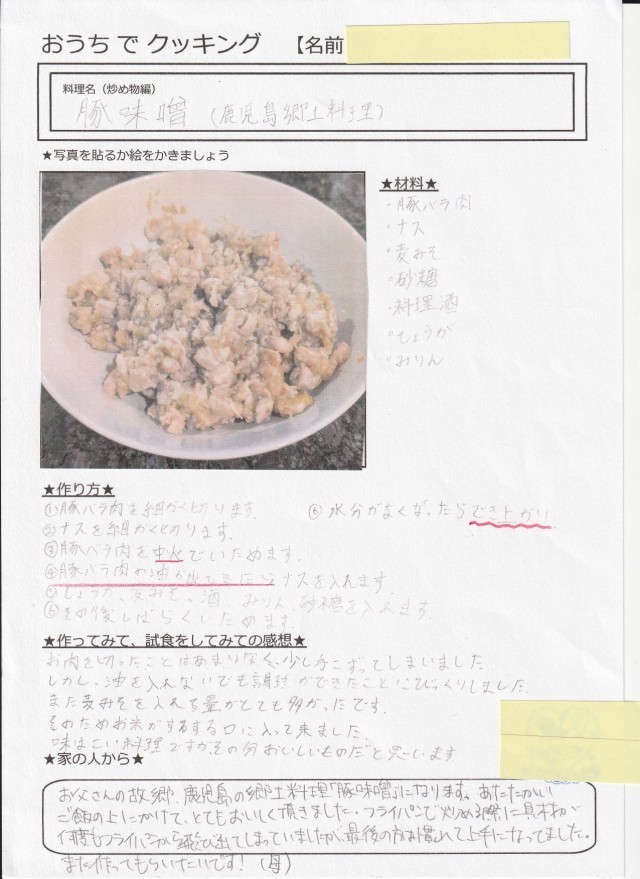 おうち で クッキング 【名前
料理名（炒め物編）
豚味噌（鹿児島郷土料理）
★写真を貼るか絵をかきましょう
★材料★
・豚バラ肉
・ナス
・麦みそ
・砂糖
・料理酒
・しょうが
・みりん
★作り方★
①豚バラ肉を細かく切ります。
②ナスを細かく切ります。
③豚バラ肉を中火でいためます。
④豚バラ肉の油が出てきたらナスを入れます。
⑤しょうが、麦みそ、酒、みりん、砂糖を入れます。
⑥その後しばらくいためます。
⑥水分がなくなったらでき上がり
★作ってみて、試食をしてみての感想★
お肉を切ったことはあまりなく、少し手こずってしまいました。
しかし、油を入れないでも調理ができたことにびっくりしました。
また麦みそを入れる量がとても多かったです。
そのためお米がするする口に入って来ました。
味はこい料理ですがその分おいしいものだと思います
★家の人から★
お父さんの故郷、鹿児島の郷土料理「豚味噌」になります。あたたかい
ご飯の上にかけて、とてもおいしく頂きました。フライパンで炒める際に具材が
何度もフライパンから飛び出てしまっていましたが、最後の方は慣れて上手になってました。
また作ってもらいたいです！（母）